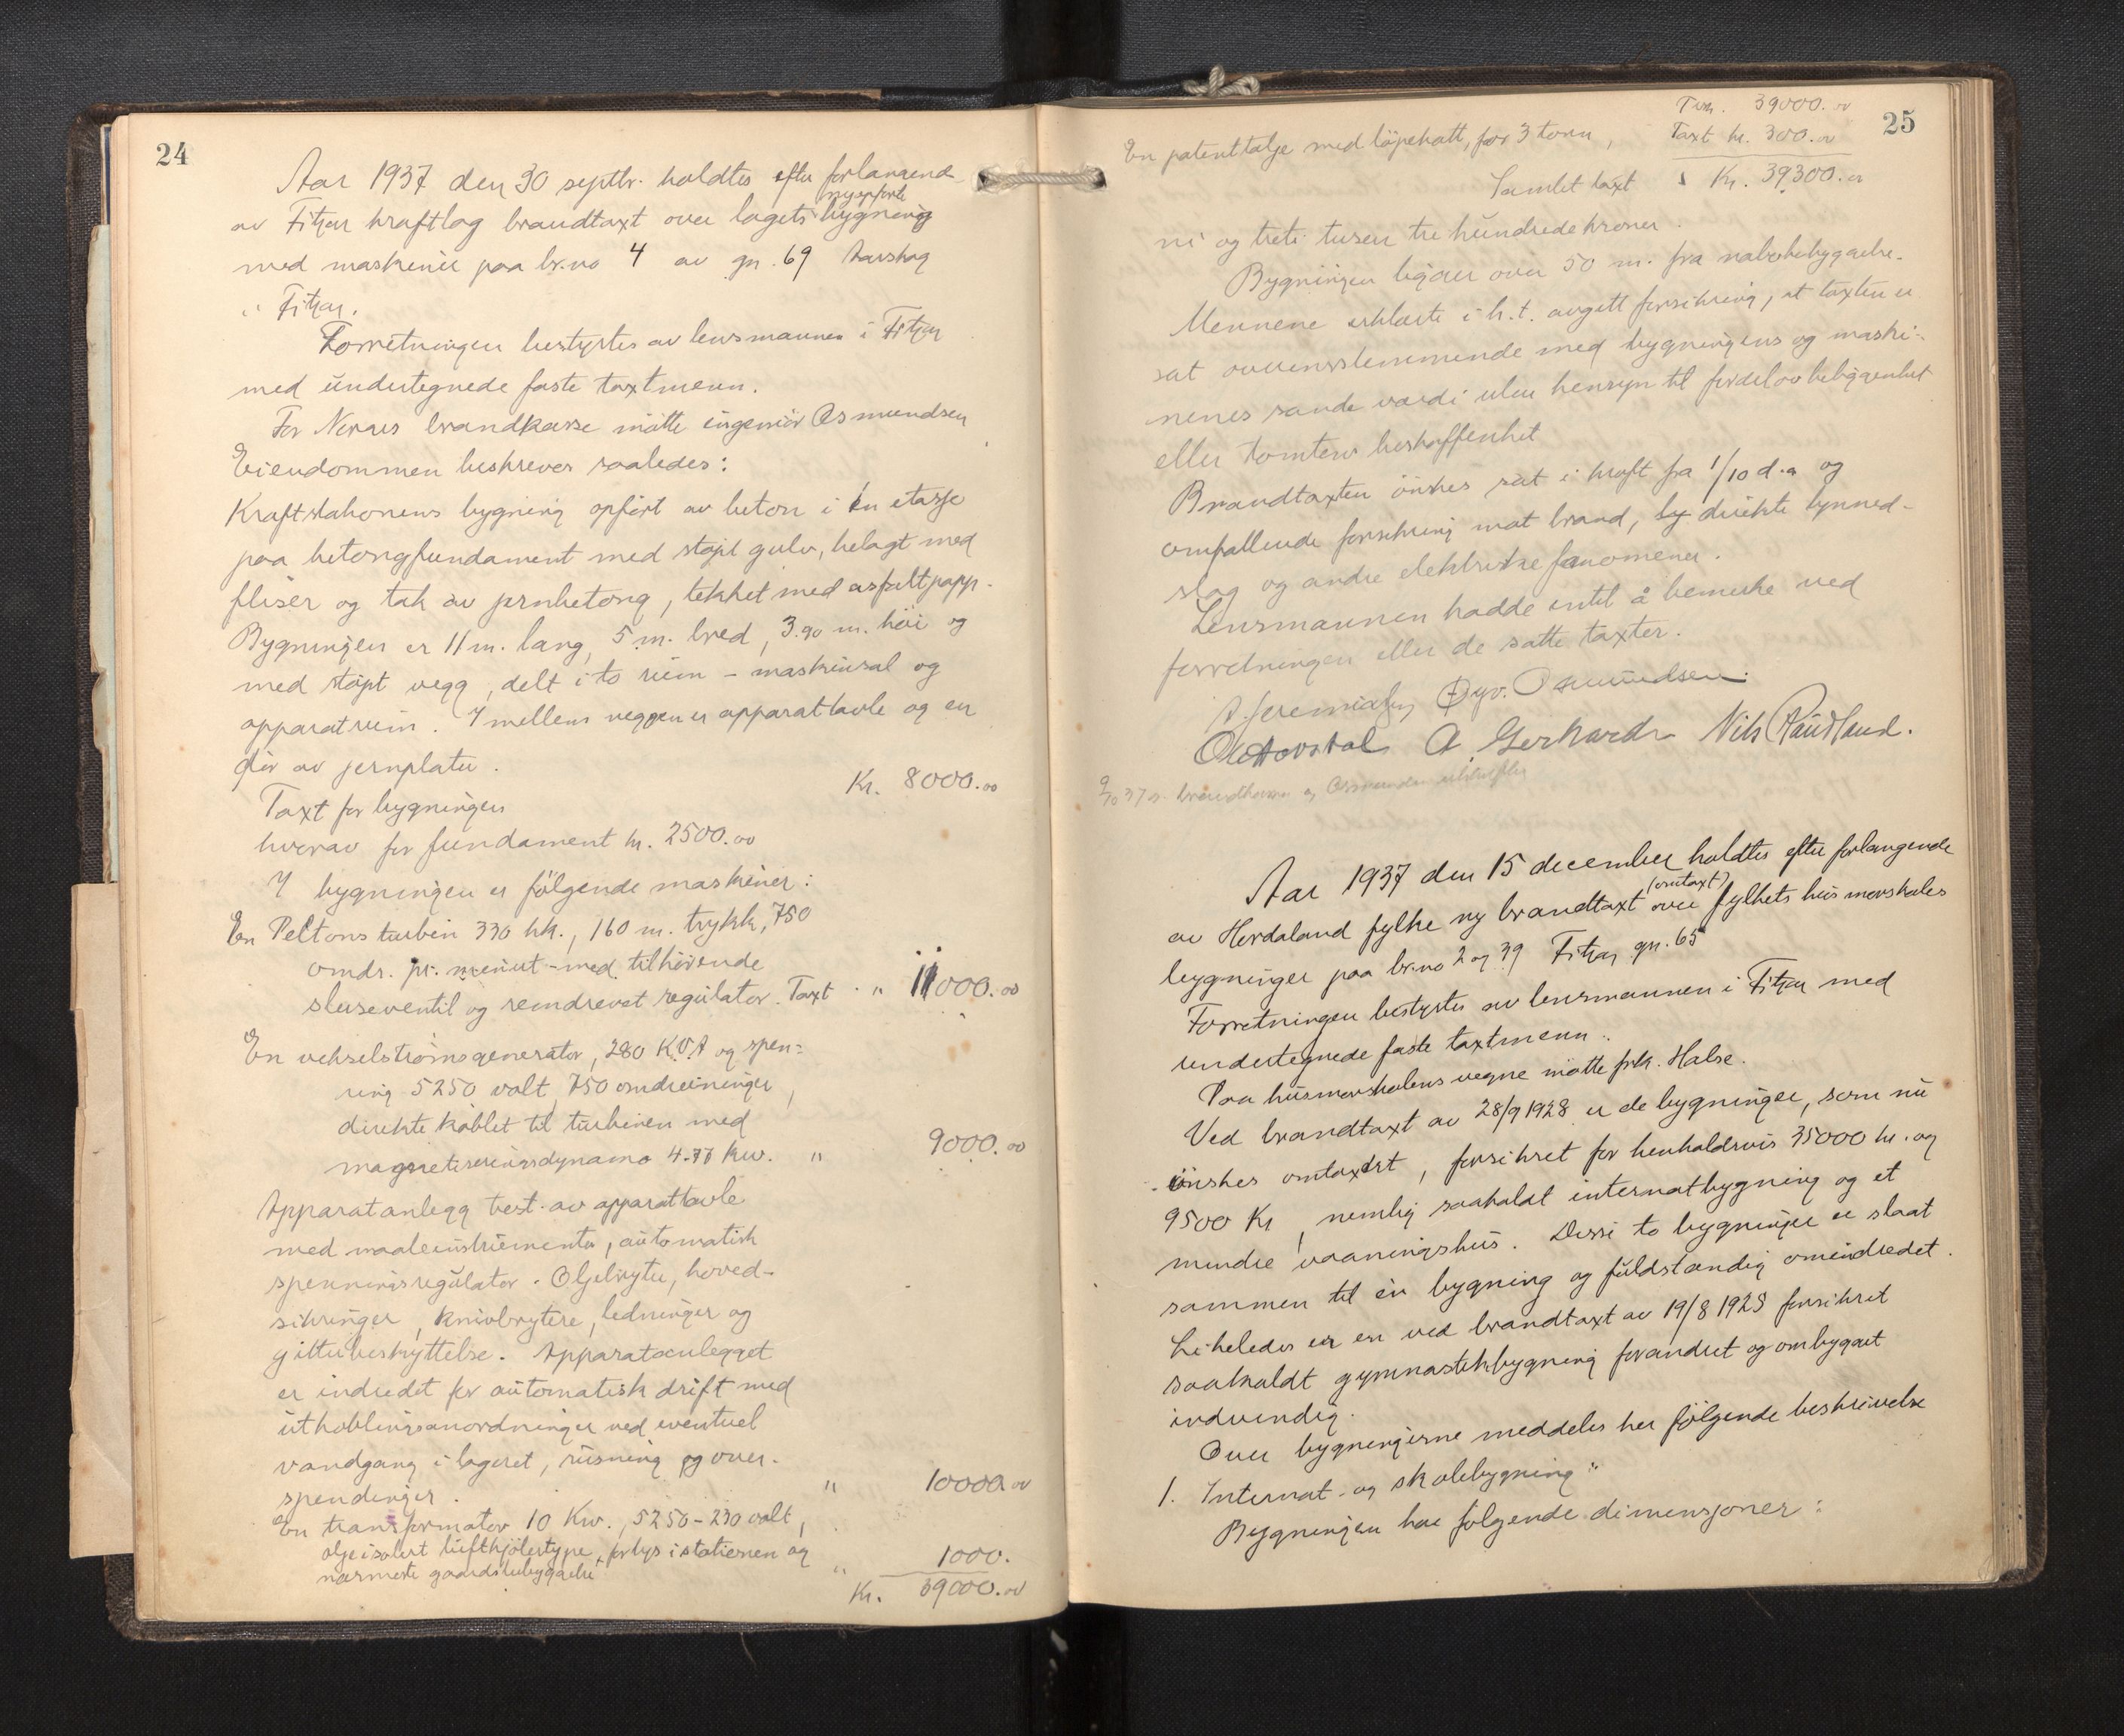 24
Aar 1937 den 30 septbr. holdtes efter forlangende
nyopförte
av Fitjar kraftlag brandtaxt over lagets bygning
med maskiner paa br.no 4 av gn. 69 Aarskog
i Fitjar.
Forretningen bestyrtes av lensmannen i Fitjar
med undertegnede faste taxtmenn.
For Norges brandkasse mötte ingeniör Osmundsen
Eiendommen beskreves saaledes:
Kraftstationens bygning opfört av beton i én etasje
paa betongfundament med stöpt gulv, belagt med
fliser og tak av jernbetong, tekket med asfaltpapp.
Bygningen er 11 m. lang, 5 m. bred, 3.90 m. höi og
med stöpt vegg, delt i to rum - maskinsal og
apparatrum. I mellem veggen er apparattavle og en
dör av jernplater.
Taxt for bygningen Kr. 8000.00
hvorav for fundament kr. 2500.00
I bygningen er fölgende maskiner:
En Peltons turbin 330 hk., 160 m. trykk, 750
omdr. pr. minut - med tilhörende
sluseventil og remdrevet regulator. Taxt . " 11000.00
En vekselströmsgenerator, 280 K.V.A og spen=
ning 5250 volt, 750 omdreininger,
direkte koblet til turbinen med
magnetiseringsdynamo 4.77 Kw. " 9000.00
Apparatanlegg best. av apparattavle
med maaleinstrumenter, automatisk
spenningsregulator. Oljebryter, hoved-
sikringer, knivbrytere, ledninger og
gitterbeskyttelse. Apparatanlegget
er indredet for automatisk drift med
utkoblingsanordninger ved eventuel
vandgang i lageret, rusning og over-
spendinger. " 10000.00
En transformator 10 Kw., 5250-230 volt,
oljeisolert luftkjölertype, for lys i stationen og
nærmeste gaardsbebyggelse " 1000.
Kr. 39000.00
25
Tran. 39000.00
En patenttalje med löpekatt, for 3 tonn, Taxt kr. 300.00
Samlet taxt Kr. 39300.00
ni og treti tusen tre hundrede kroner.
Bygningen ligger over 50 m. fra nabobebyggelse.
Mennene erklærte i h.t. avgitt forsikring, at taxten er
sat overensstemmende med bygningens og maski-
nenes sande værdi uten hensyn til fordel av beliggenhet
eller tomtens beskaffenhet
Brandtaxten önskes sat i kraft fra 1/10 d.a og
omfattende forsikring mot brand, direkte lynned-
slag og andre elektriske fænomener.
Lensmannen hadde intet å bemerke ved
forretningen eller de satte taxter.
A. Jeremiassen Öyv. Osmundsen.
O. A. Gerhards Nils Raudland.
Aar 1937 den 15 december holdtes efter forlangende
(omtaxt)
av Hordaland fylke ny brandtaxt over fylkets husmorskoles
bygninger paa br.no 2 og 39 Fitjar gn. 65
Forretningen bestyrtes av lensmannen i Fitjar med
undertegnede faste taxtmenn.
Paa husmorskolens vegne mötte frk. Halse.
Ved brandtaxt av 28/9 1928 er de bygninger, som nu
önskes omtaxert, forsikret for henholdsvis 35000 kr. og
9500 Kr, nemlig saakaldt internatbygning og et
mindre vaaningshus. Disse to bygninger er slaat
sammen til én bygning og fuldstændig omindredet.
Likeledes er en ved brandtaxt av 19/8 1925 forsikret
saakaldt gymnastikbygning forandret og ombygget
indvendig.
Over bygningerne meddeles her fölgende beskrivelse
1. Internat- og skolebygning"
Bygningen har fölgende dimensjoner: